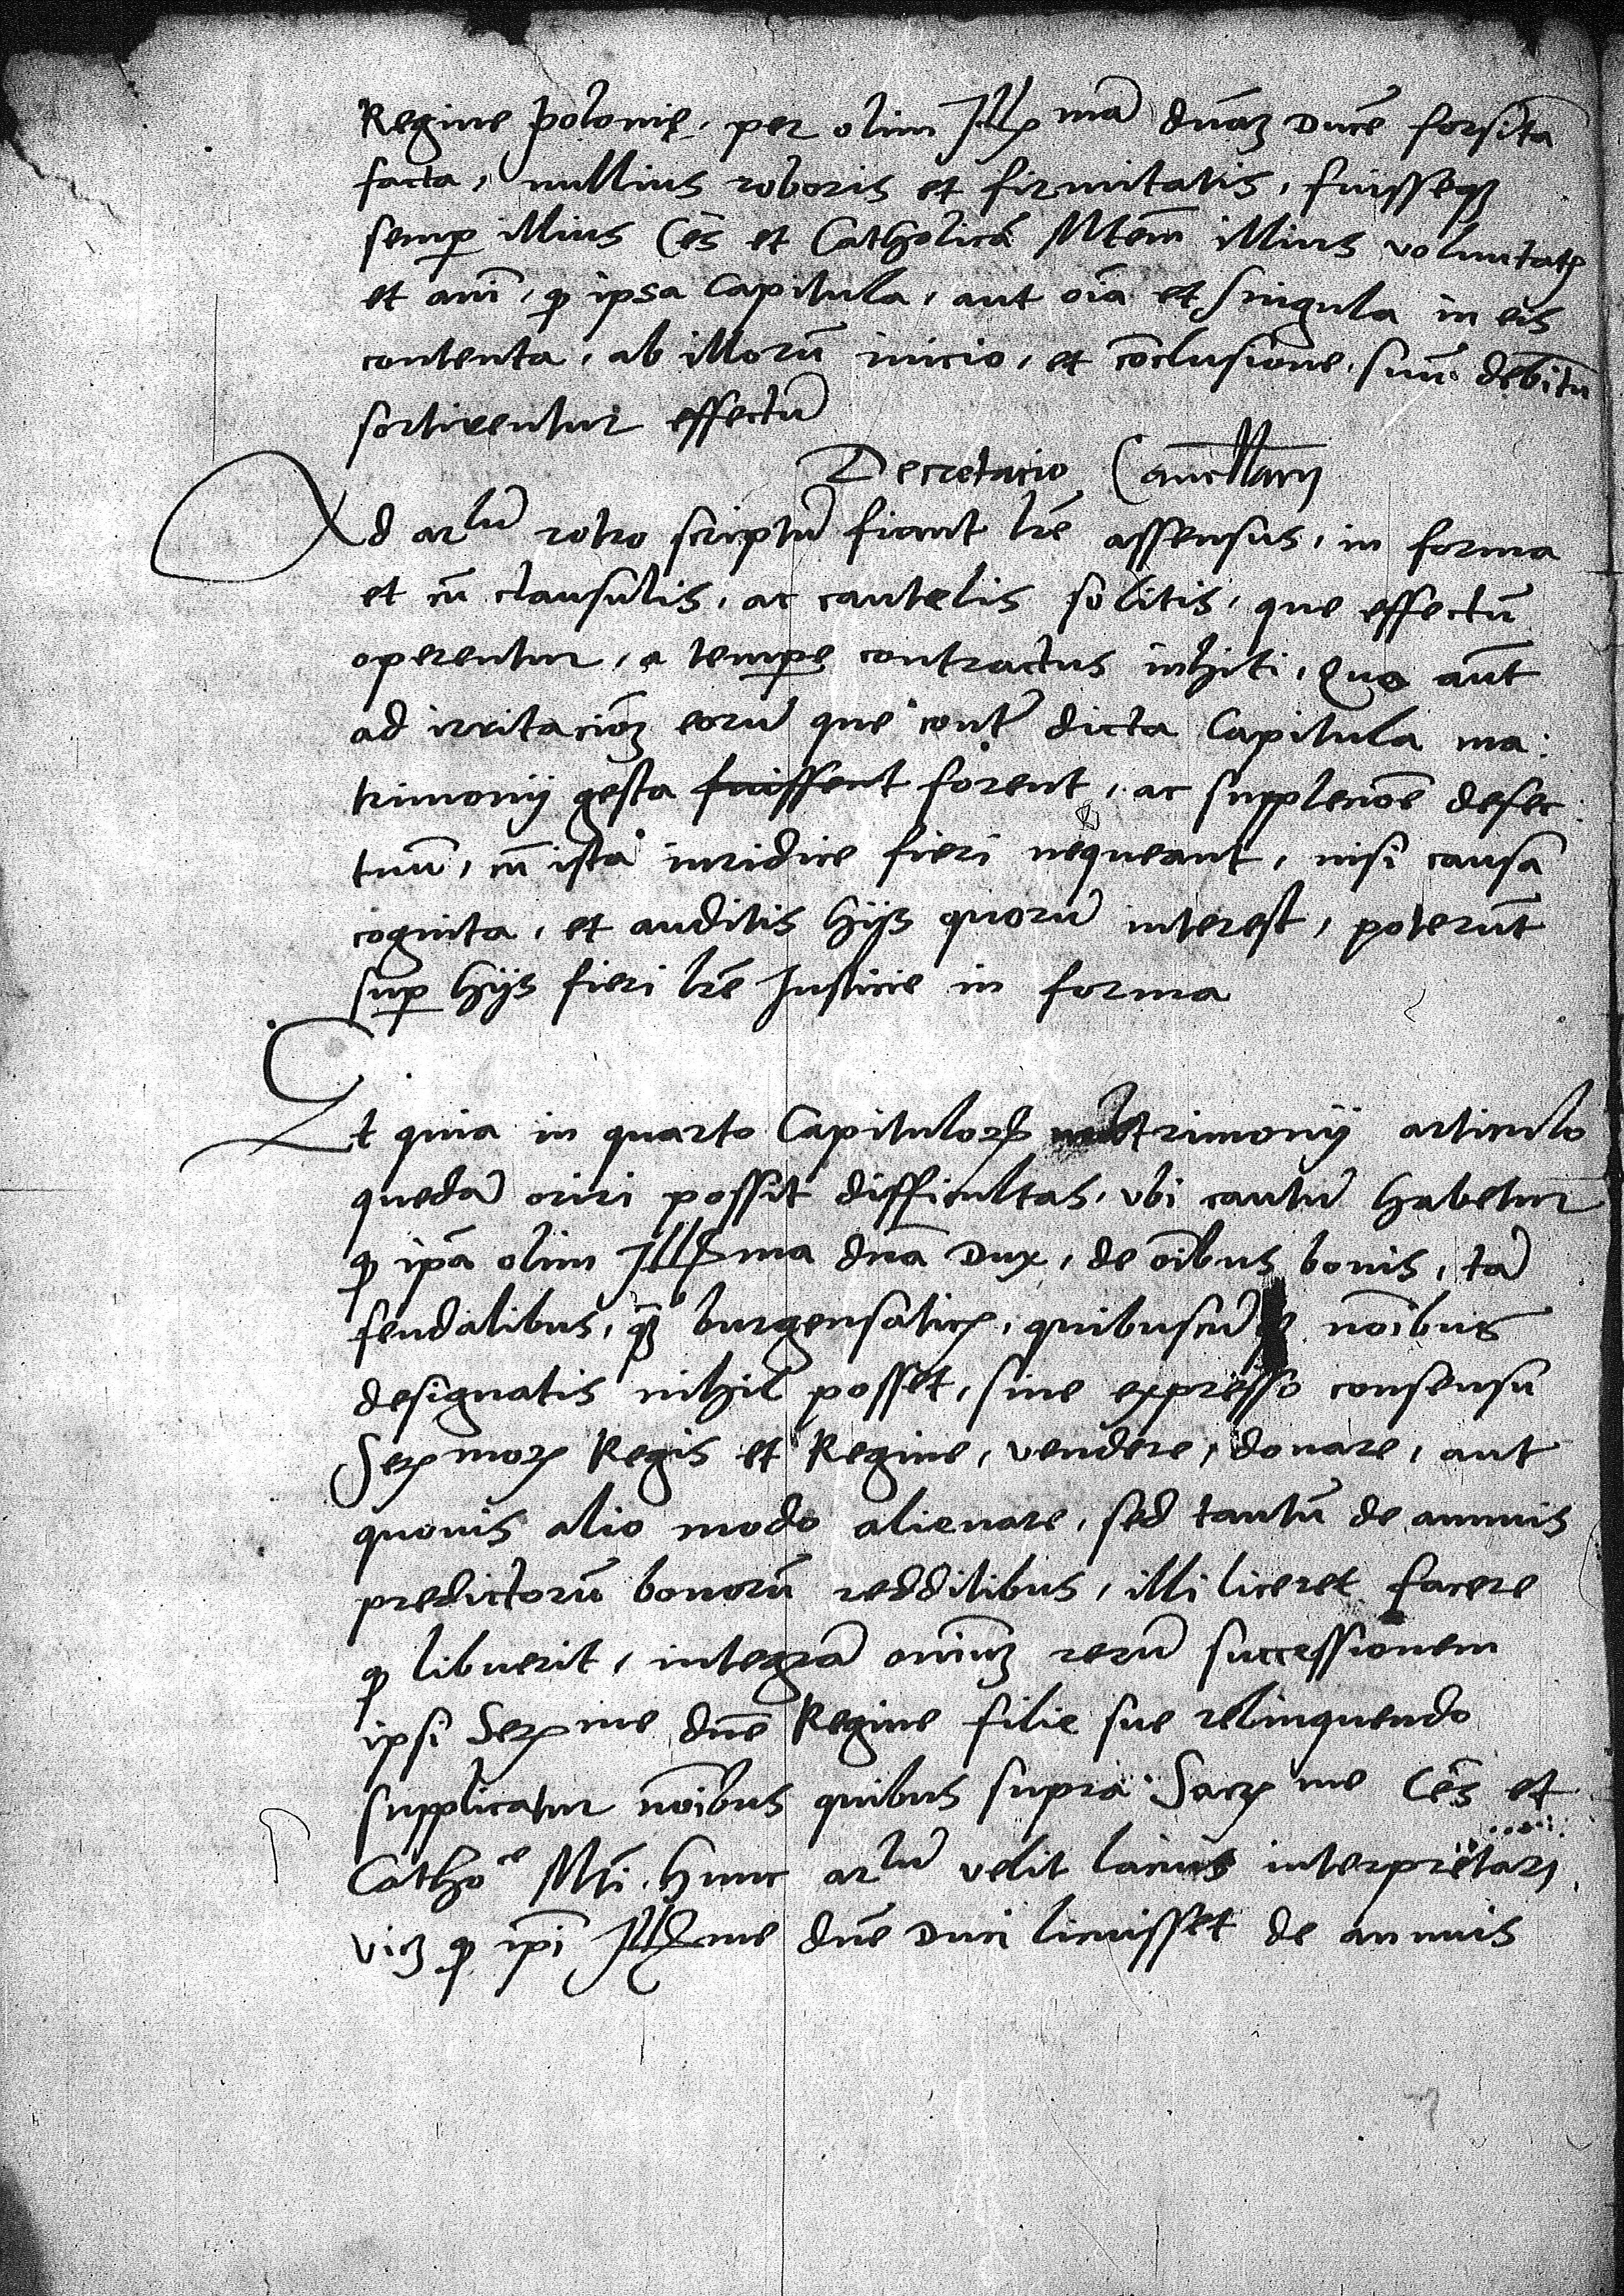 Regine polonię, per olim Illꝝ mā dnāʒ Ducē forsitā
facta, nullius roboris et firmitatis, fuisseqʒ
semꝑ illius Ces et Catholicā Mtēm illius voluntatꝭ
et anī, ꝙ ipsa Capitula, aut oīa et singula in eis
contenta, ab illorū inicio, et cōclusione, suū debitū
sortirentur effectū
Decretacio Cancellarij
Ad arlū retro scriptū fiant lrē assensus, in forma
et cū clausulis, ac cautelis solitis, que effectū
operentur, a tempe contractus inhiti, Quo aūt
ad irritacioʒ eorū que contͣ dicta Capitula ma:
trimonij gesta fuissent forent, ac supplecioē defec:
tuū, cū ista iuridice fieri nequeant, nisi causa
cognita, et auditis hijs quorū interest, poterūt
suꝑ hijs fieri lrē Justicie in forma
Et quia in quarto Capitulorꝝ matrimonij articulo
quedā oriri possit difficultas, vbi cautū habetur
ꝙ ipā olim Illꝝma dnā Dux, de oībus bonis, tā
feudalibus, qʒ burgensaticꝭ, quibuscūqʒ noībus
designatis nihil posset, sine expresso consensu
Serꝝmorꝝ Regis et Regine, vendere, donare, aut
quouis alio modo alienare, sed tantū de annuis
predictorū bonorū redditibus, illi liceret facere
ꝙ libuerit, integrā oniūʒ rerū successionem
ipsi Serꝝme dnē Regine filie sue relinquendo
supplicatur noībus quibus supra Sacrꝝ me Ces et
Cathoᶜᵉ Mti. hunc arlū velit lacius interpretari,
viʒ ꝙ ipī Illꝝme dnē Duci licuisset de annuis